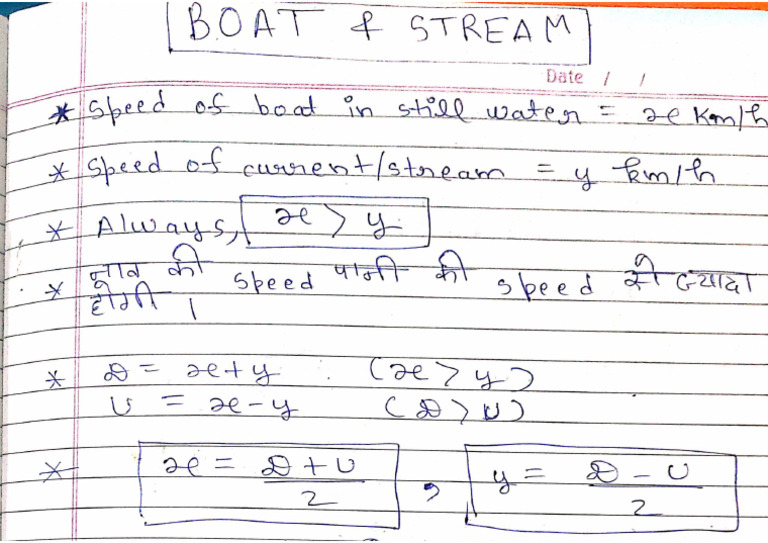 BOAT & STREAM
Date / /
* Speed of boat in still water = x km/h
* Speed of current/stream = y km/h
* Always, x > y
* नाव की speed पानी की speed से ज्यादा
होगी ।
* D = x+y (x > y)
U = x-y (D > U)
* x = D + U / 2 , y = D - U / 2